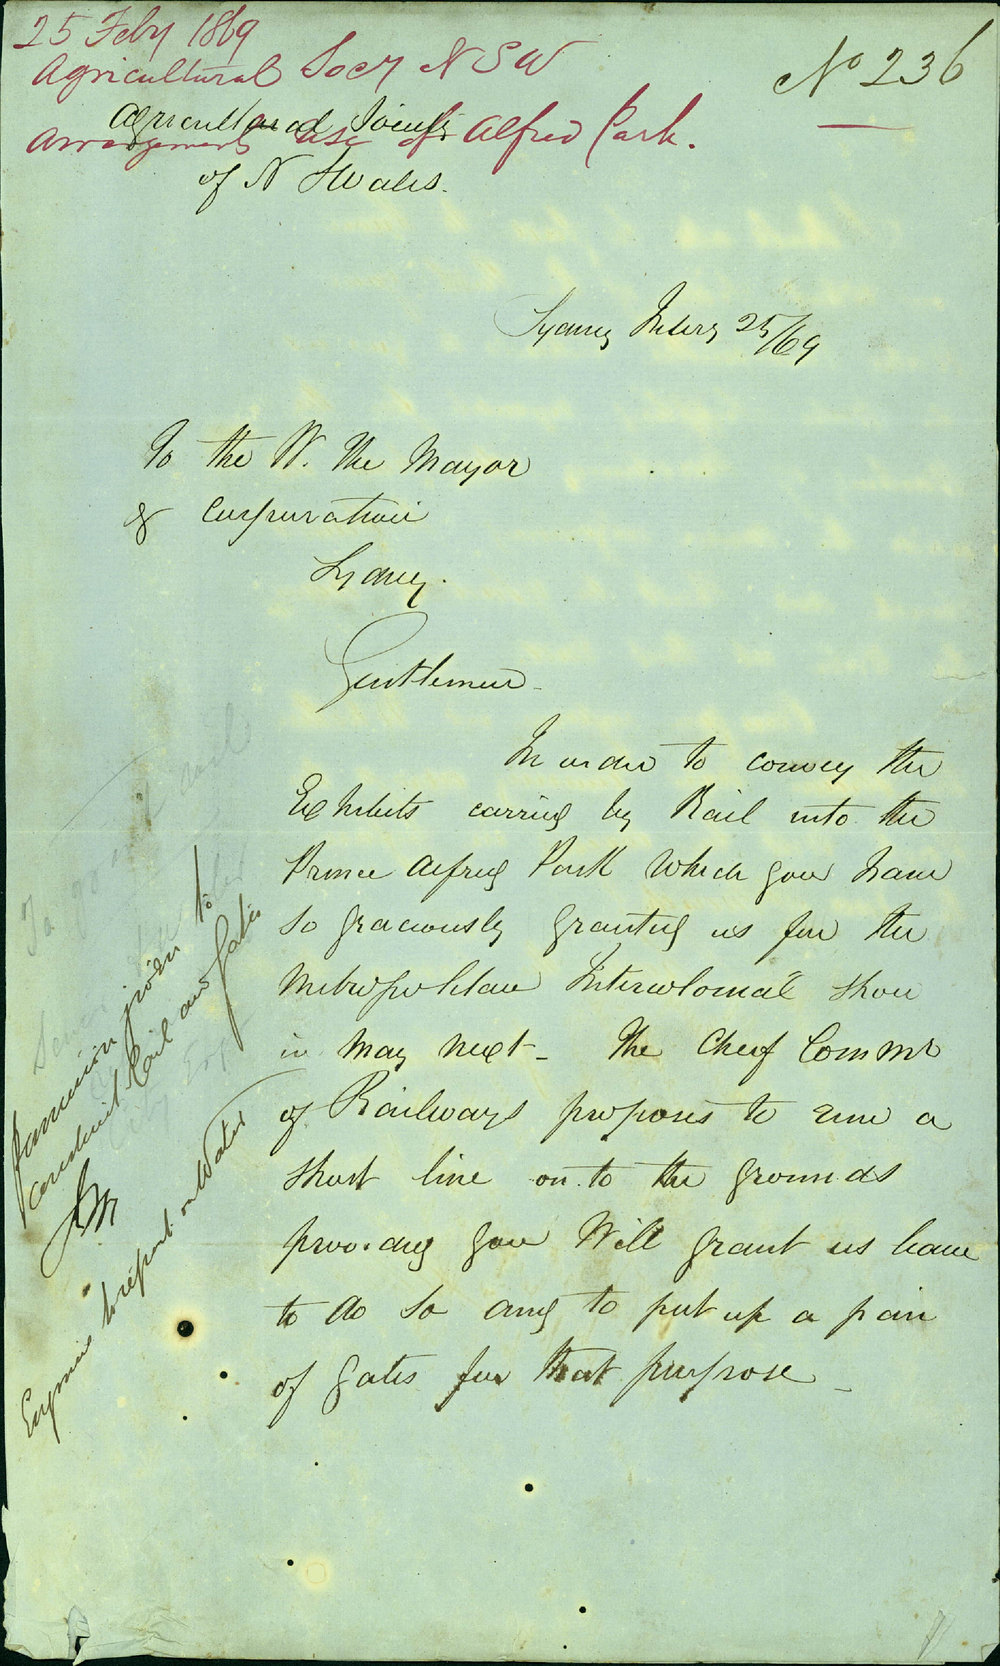 25 Feby 1869
Agricultural Socy N S W
Arrangements use of Alfred Park.
No 236
Agricultural Society
of N S Wales.
Sydney Febery 25/69
To the W. the Mayor
& Corporation
Sydney.
Gentlemen
In order to convey the
Exhibits carried by Rail into the
Prince Alfred Park which you have
so graciously granted us for the
Metropolitan Intercolonial Show
in May next - The Cheif Commr
of Railways proposes to run a
short line on to the grounds
providing you Will grant us leave
to do so and to put up a pair
of gates for that purpose -
Permission given to
construct Rail and Gates
Engineer to report on Water
To go